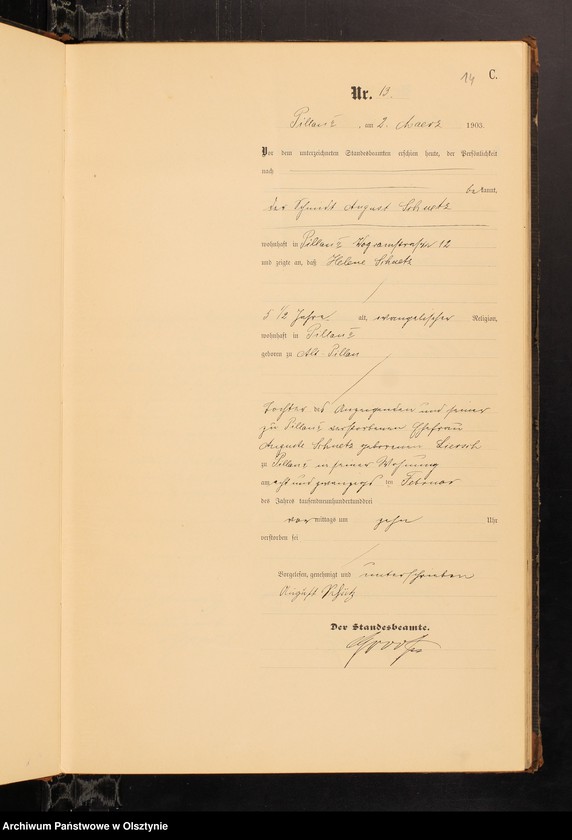 14 C.
Nr. 13.
Pillau I, am 2. Maerz 1903.
Vor dem unterzeichneten Standesbeamten erschien heute, der Persönlichkeit
nach
bekannt,
der Schmidt August Schuetz
wohnhaft in Pillau I 12
und zeigte an, daß Helene Schuetz
8 1/2 Jahre alt, evangelischer Religion,
wohnhaft in Pillau I
geboren zu Alt Pillau
Tochter des Anzeigenden und seiner
zu Pillau I verstorbenen Ehefrau
Auguste Schuetz geborenen
zu Pillau I in seiner Wohnung
am acht und zwanzigsten Februar
des Jahres tausendneunhundertunddrei
vormittags um zehn Uhr
verstorben sei
Vorgelesen, genehmigt und unterschrieben
August Schütz
Der Standesbeamte.
Archiwum Państwowe w Olsztynie